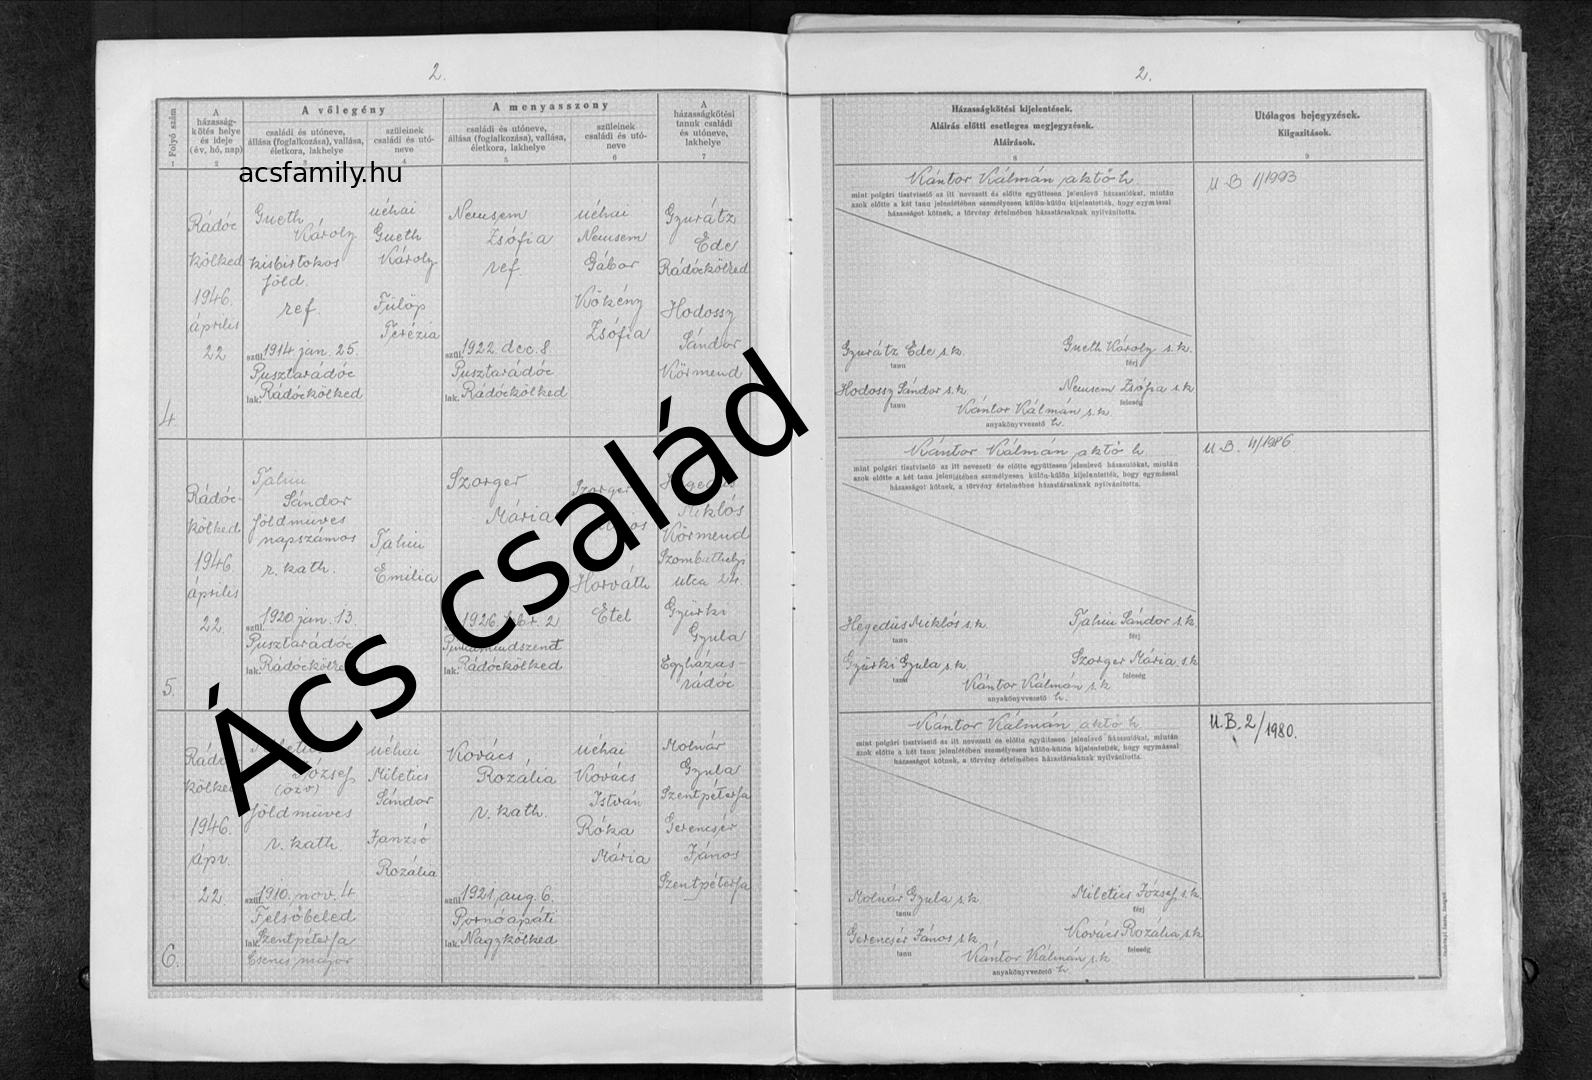 2.
A vőlegény
A menyasszony
Folyó szám
A
házasság-
kötés helye
és ideje
(év, hó, nap)
családi és utóneve,
állása (foglalkozása), vallása,
életkora, lakhelye
szüleinek
családi és utó-
neve
családi és utóneve,
állása (foglalkozása), vallása,
életkora, lakhelye
szüleinek
családi és utó-
neve
A
házasságkötési
tanuk családi
és utóneve,
lakhelye
1 2 3 4 5 6 7
acsfamily.hu
4.
Rádóc
kölked
1946.
április
22
Gueth
Károly
kisbirtokos
föld.
ref.
szül. 1914 jan. 25.
Pusztarádóc
lak. Rádóckölked
néhai
Gueth
Károly
Fülöp
Terézia
Nemsem
Zsófia
ref.
szül. 1922. dec. 8
Pusztarádóc
lak. Rádóckölked
néhai
Nemsem
Gábor
Kökény
Zsófia
Gyurátz
Ede
Rádóckölked
Hodossy
Sándor
Körmend
5.
Rádóc-
kölked
1946.
április
22.
Sándor
földmüves
napszámos
r. kath.
szül. 1920. jan. 13.
Pusztarádóc
lak. Rádóckölked
Emilia
Szorger
Mária
1926.
lak. Rádóckölked
Szorger
Horváth
Etel
Hegedüs
Miklós
Körmend
Szombathelyi
utca 24.
Gyürki
Gyula
Egyházas-
rádóc
6.
kölked
1946.
ápr.
22.
József
(özv)
földmüves
r. kath.
szül. 1910. nov. 4
Felsőbeled
lak. Szentpéterfa
Csencs major
néhai
Miletics
Sándor
Janzsó
Rozália
Kovács
Rozália
r. kath.
szül. 1921. aug. 6.
Pornóapáti
lak. Nagykölked
néhai
Kovács
István
Róka
Mária
Molnár
Gyula
Szentpéterfa
Gerencsér
János
Szentpéterfa
Ács család
2.
Házasságkötési kijelentések.
Aláírás előtti esetleges megjegyzések.
Aláírások.
8
Utólagos bejegyzések.
Kiigazítások.
9
Kántor Kálmán aktó h.
mint polgári tisztviselő az itt nevezett és előtte együttesen jelenlevő házasulókat, miután
azok előtte a két tanu jelenlétében személyesen külön-külön kijelentették, hogy egymással
házasságot kötnek, a törvény értelmében házastársaknak nyilvánította.
U B 1/1993
Gyurátz Ede s.k.
tanu
Gueth Károly s.k.
férj
Hodossy Sándor s.k.
tanu
Nemsem Zsófia s.k
feleség
Kántor Kálmán s.k.
anyakönyvvezető h.
Kántor Kálmán aktó h.
mint polgári tisztviselő az itt nevezett és előtte együttesen jelenlevő házasulókat, miután
azok előtte a két tanu jelenlétében személyesen külön-külön kijelentették, hogy egymással
házasságot kötnek, a törvény értelmében házastársaknak nyilvánította.
U.B. 4/1986
Hegedüs Miklós s.k.
tanu
Sándor s.k
férj
Gyürki Gyula s.k.
tanu
Szorger Mária s.k
feleség
Kántor Kálmán s.k
anyakönyvvezető h.
Kántor Kálmán aktó h
mint polgári tisztviselő az itt nevezett és előtte együttesen jelenlevő házasulókat, miután
azok előtte a két tanu jelenlétében személyesen külön-külön kijelentették, hogy egymással
házasságot kötnek, a törvény értelmében házastársaknak nyilvánította.
U.B. 2/1980.
Molnár Gyula s.k.
tanu
Miletics József s.k.
férj
Gerencsér János s.k.
tanu
Kovács Rozália s.k
feleség
Kántor Kálmán s.k
anyakönyvvezető h